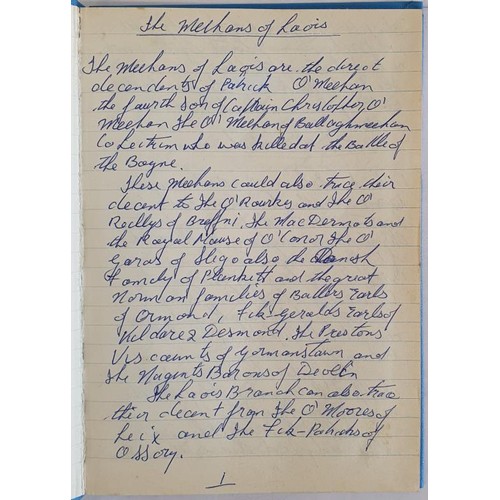 The Meehans of Laois
The Meehans of Laois are the direct
decendents of Patrick O'Meehan
the fourth son of Captain Christopher O'
Meehan The O'Meehan of Ballaghmeehan
Co Leitrim who was killed at the Battle of
the Boyne.
These Meehans could also trace their
decent to The O'Rourkes and The O'
Reillys of Breffni, The MacDermots and
the Royal House of O'Conor The O'
Garas of Sligo also the Danish
Family of Plunkett and the great
Norman families of Butlers Earls
of Ormond, Fitz-Geralds Earls of
Kildare & Desmond. The Prestons
Viscounts of Gormanstown and
The Nugents Barons of Devlin
The Laois Branch can also trace
their decent from The O'Moores of
Leix and The Fitz-Patricks of
Ossory.
1